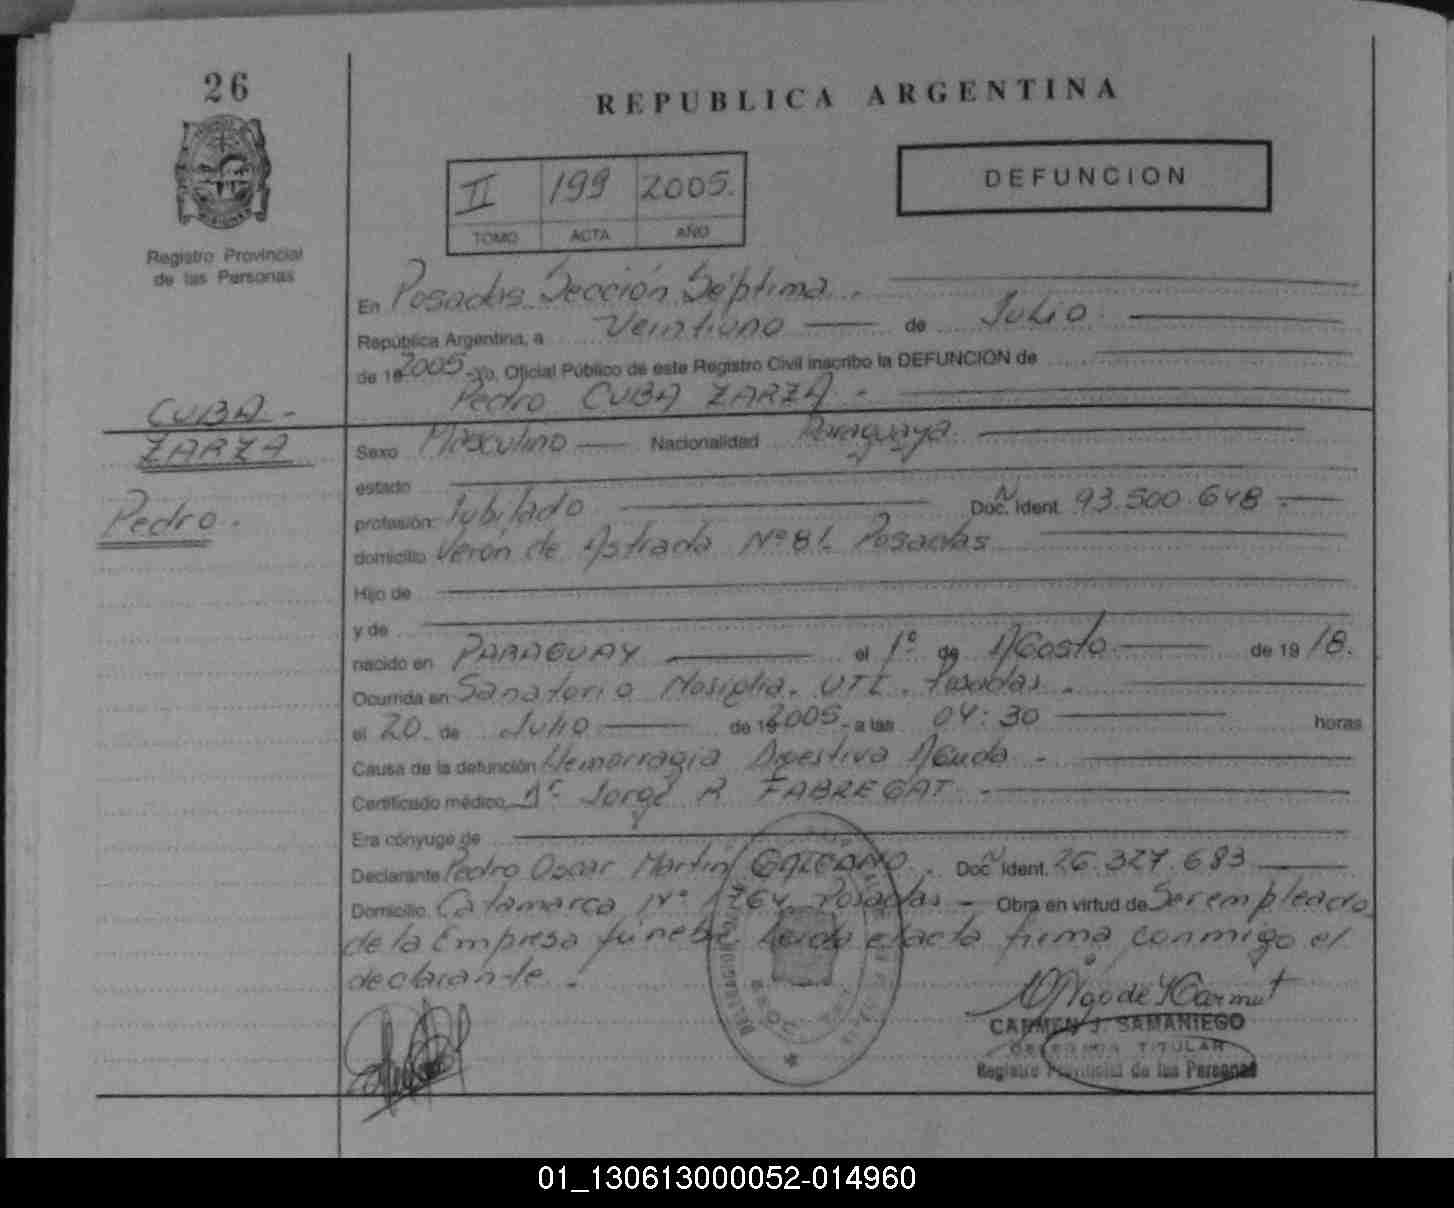 26
REPUBLICA ARGENTINA
Registro Provincial
de las Personas
II 199 2005.
TOMO ACTA AÑO
DEFUNCION
En Posadas Sección Séptima.
República Argentina, a Veintiuno de Julio
de 19 2005 - Yo, Oficial Público de este Registro Civil inscribo la DEFUNCION de
Pedro CUBA ZARZA -
CUBA -
ZARZA
Pedro.
Sexo Masculino Nacionalidad Paraguaya
estado
profesión: Jubilado Doc. Ident. 93.500.648
domicilio Verón de Astrada Nº 81. Posadas
Hijo de
y de
nacido en PARAGUAY el 1º de Agosto de 19 18.
Ocurrida en Sanatorio UTI. Posadas.
el 20 de Julio de 19 2005 - a las 04:30 horas
Causa de la defunción Hemorragia Digestiva Aguda -
Certificado médico Dr Jorge R FABREGAT -
Era cónyuge de
Declarante Pedro Oscar Martin Doc. Ident. 26.327.683
Domicilio Catamarca Nº 1764 Posadas - Obra en virtud de Ser empleado
de la Empresa fúnebre. Leída el acta firma conmigo el
declarante.
CARMEN J. SAMANIEGO
TITULAR
Registro Provincial de las Personas
01_130613000052-014960